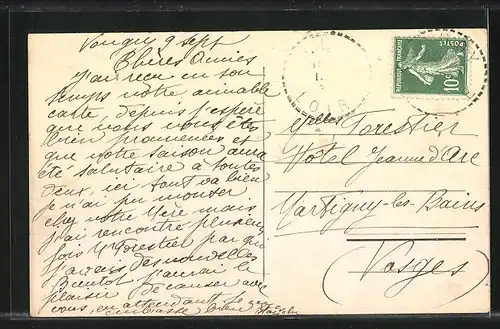 Vougy 9 sept
Chères Amies
J'ai reçu en son
temps votre aimable
carte, depuis j'espère
que vous vous êtes
bien promenées et
que votre saison aura
été salutaire à toutes
deux, ici tout va bien
je n'ai pu monter
chez votre Père mais
j'ai rencontré plusieurs
fois Mr Forestier par qui
j'avais des nouvelles
Bientôt j'aurai le
plaisir de causer avec
vous, en attendant je vous
embrasse bien
LOIR
POSTES
REPUBLIQUE FRANÇAISE
10c
Melles Forestier
Hôtel Jeanne d'Arc
Martigny-les-Bains
(Vosges)